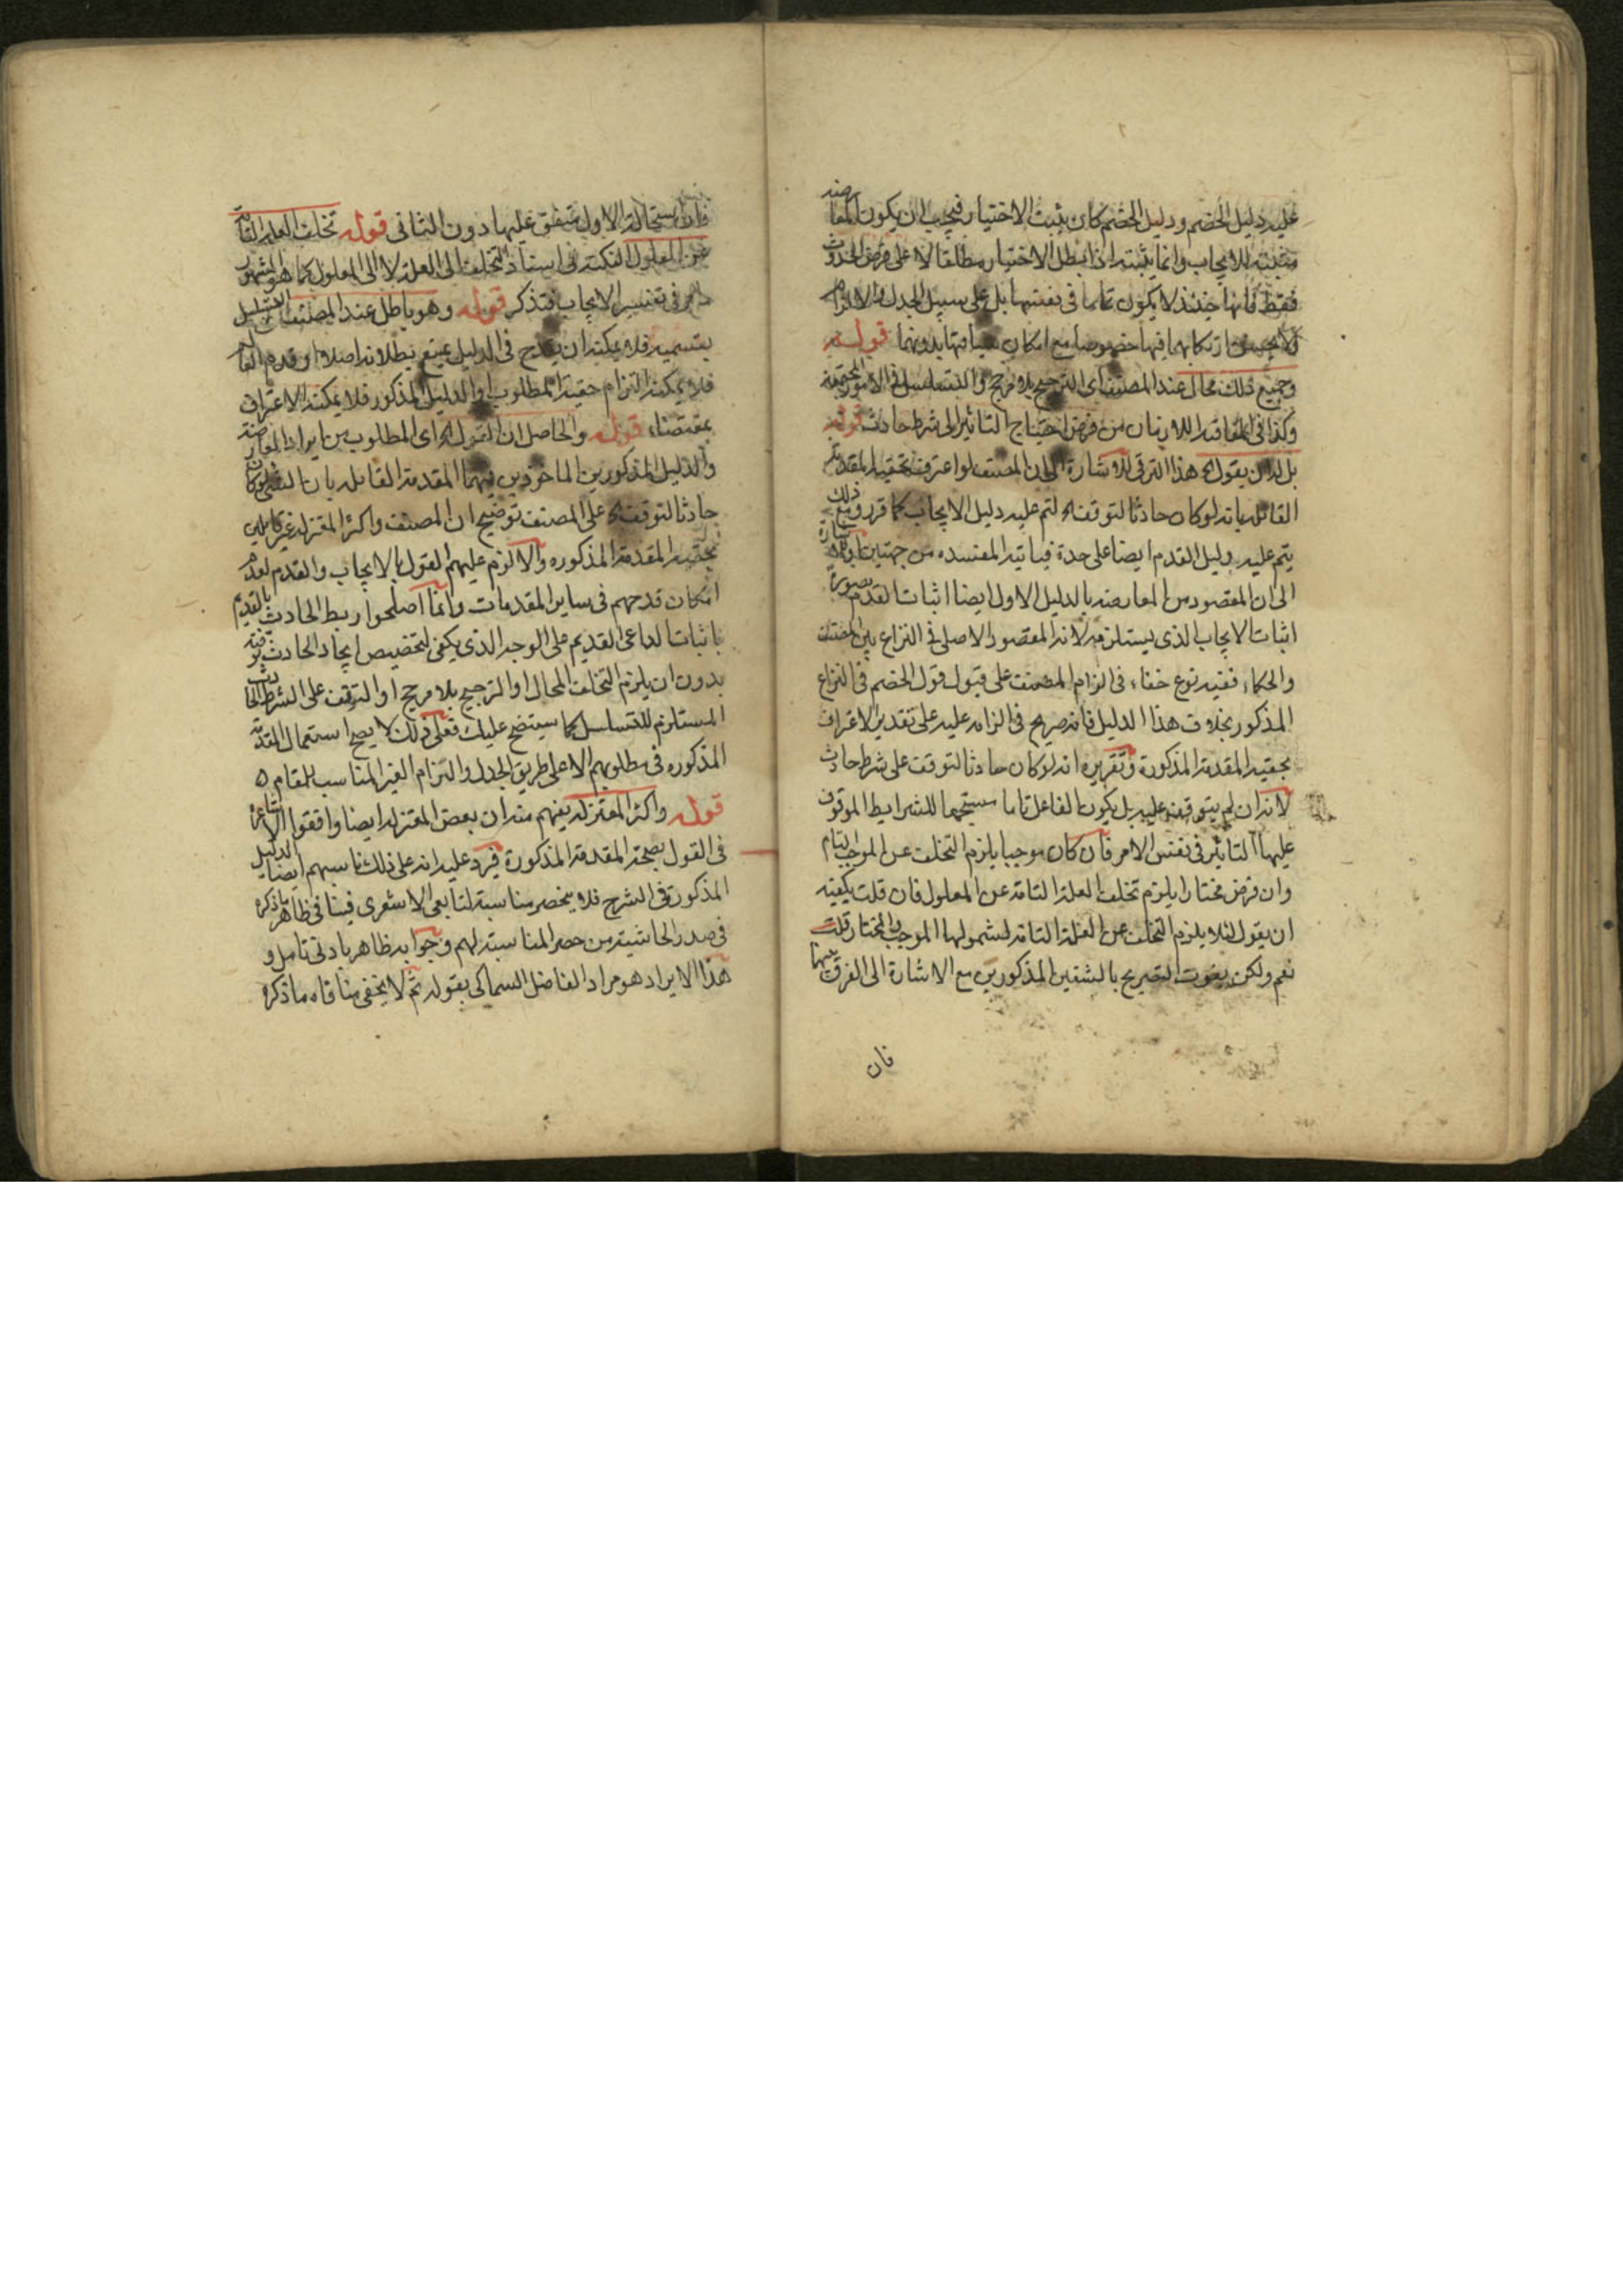 عليه دليل الخصم ودليل الخصم كان يثبت الاختيار فيجب ان يكون المعارضة
مثبتة للايجاب وانما يثبته اذا ابطل الاختيار مطلقا لا على فرض الحدوث
فقط فانها حينئذ لا يكون تماما في نفسها بل على سبيل الجدل والالزام
ولا يحسن ارتكابهما فيها خصوصا مع امكان سياقتها بدونهما قوله
وجميع ذلك محال عند المصنف اى الترجيح بلا مرجح والتسلسل في الامور المجتمعة
وكذا في المتعاقبة اللازمان من فرض احتياج التاثير الى شرط حادث قوله
بل له ان يقول الخ هذا الترقى للاشارة الى ان المصنف لو اعترف بحقية المقدمة
القائلة بانه لو كان حادثا لتوقف الخ لتم عليه دليل الايجاب كما قرر ومع ذلك
يتم عليه دليل القدم ايضا على حدة فياتيه المفسده من جهتين او للاشارة
الى ان المقصود من المعارضة بالدليل الاول ايضا اثبات القدم بصورة
اثبات الايجاب الذى يستلزمه لانه المقصود الاصلى في النزاع بين المصنف
والحكماء ففيه نوع خفاء في الزام المصنف على قبول قول الخصم في النزاع
المذكور بخلاف هذا الدليل فانه صريح في الزامه عليه على تقدير الاعتراف
بحقية المقدمة المذكورة وتقريره انه لو كان حادثا لتوقف على شرط حادث
لانه ان لم يتوقف عليه بل يكون الفاعل تاما مستجمعا للشرايط الموقوف
عليها التاثير في نفس الامر فان كان موجبا يلزم التخلف عن الموجب التام
وان فرض مختارا يلزم تخلف العلة التامة عن المعلول فان قلت يكفيه
ان يقول لئلا يلزم التخلف عن العلة التامة لشمولها الموجب والمختار قلت
نعم ولكن يفوت التصريح بالشقين المذكورين مع الاشارة الى الفرق بينهما
فان
فان استحالة الاول متفق عليها دون الثانى قوله تخلف العلة التامة
عن المعلول النكتة في اسناد التخلف الى العلة لا الى المعلول كما هو المشهور
في تفسير الايجاب فتذكر قوله وهو باطل عند المصنف
بقسميه فلا يمكنه ان يقدح في الدليل بمنع بطلانه اصلا
فلا يمكنه التزام حقية المطلوب والدليل المذكور فلا يمكنه الاعتراف
بمقتضاه قوله والحاصل ان القول الخ اى المطلوب من ايراد المعارضة
والدليل المذكورين الماخوذين فيهما المقدمة القائلة بان الشئ لو كان
حادثا لتوقف الخ على المصنف توضيح ان المصنف واكثر المعتزلة غير قائلين
بحقية المقدمة المذكوره والا لزم عليهم القول بالايجاب والقدم لعدم
امكان قدحهم في ساير المقدمات وانما اصلحوا ربط الحادث بالقديم
باثبات الداعى القديم على الوجه الذى يكفى لتخصيص ايجاد الحادث بوقته
بدون ان يلزم التخلف المحال او الترجيح بلا مرجح او التوقف على الشرط الحادث
المستلزم للتسلسل كما سيتضح عليك فعلى ذلك لا يصح استعمال المقدمة
المذكوره في مطلوبهم الا على طريق الجدل والتزام الغير المناسب للمقام
قوله واكثر المعتزلة يفهم منه ان بعض المعتزلة ايضا وافقوا الاشاعرة
في القول بصحة المقدمة المذكورة فيرد عليه انه على ذلك ناسبهم ايضا الدليل
المذكور في الشرح فلا ينحصر مناسبته لتابعى الاشعرى فينافى ظاهر ما ذكره
في صدر الحاشية من حصر المناسبة لهم وجوابه ظاهر بادنى تامل و
هذا الايراد هو مراد الفاضل السماكى بقوله ثم لا يخفى منافاة ما ذكره